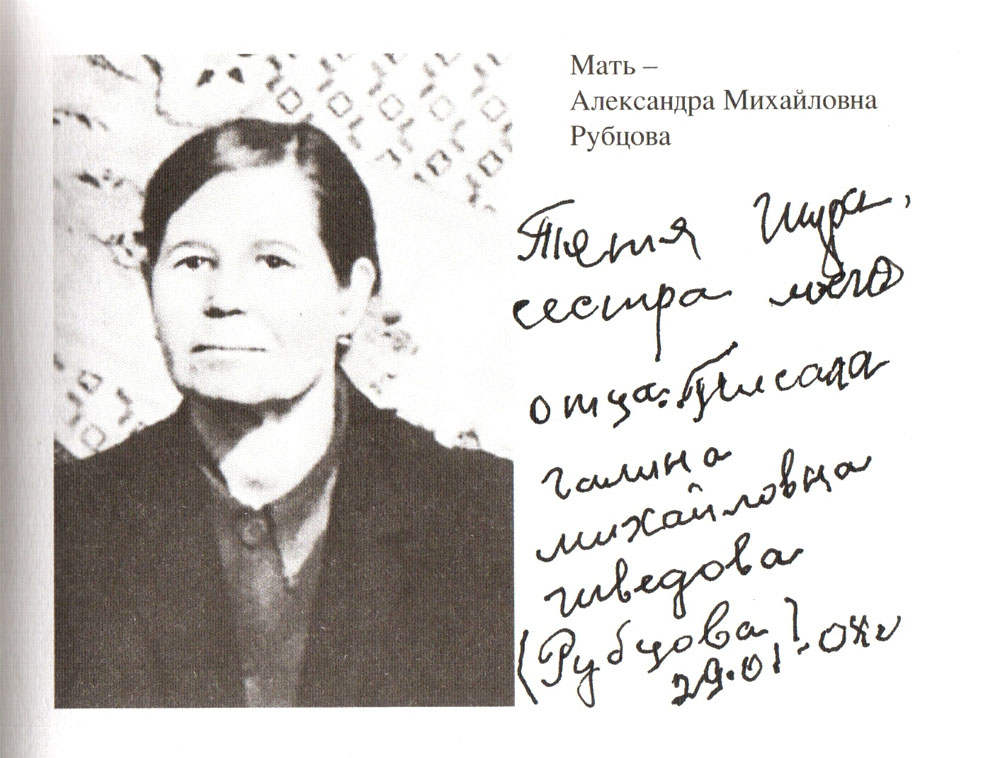 Мать –
Александра Михайловна
Рубцова
Тётя Шура,
сестра моего
отца. Писала
галина
михайловна
шведова
(Рубцова)
29.01.04г